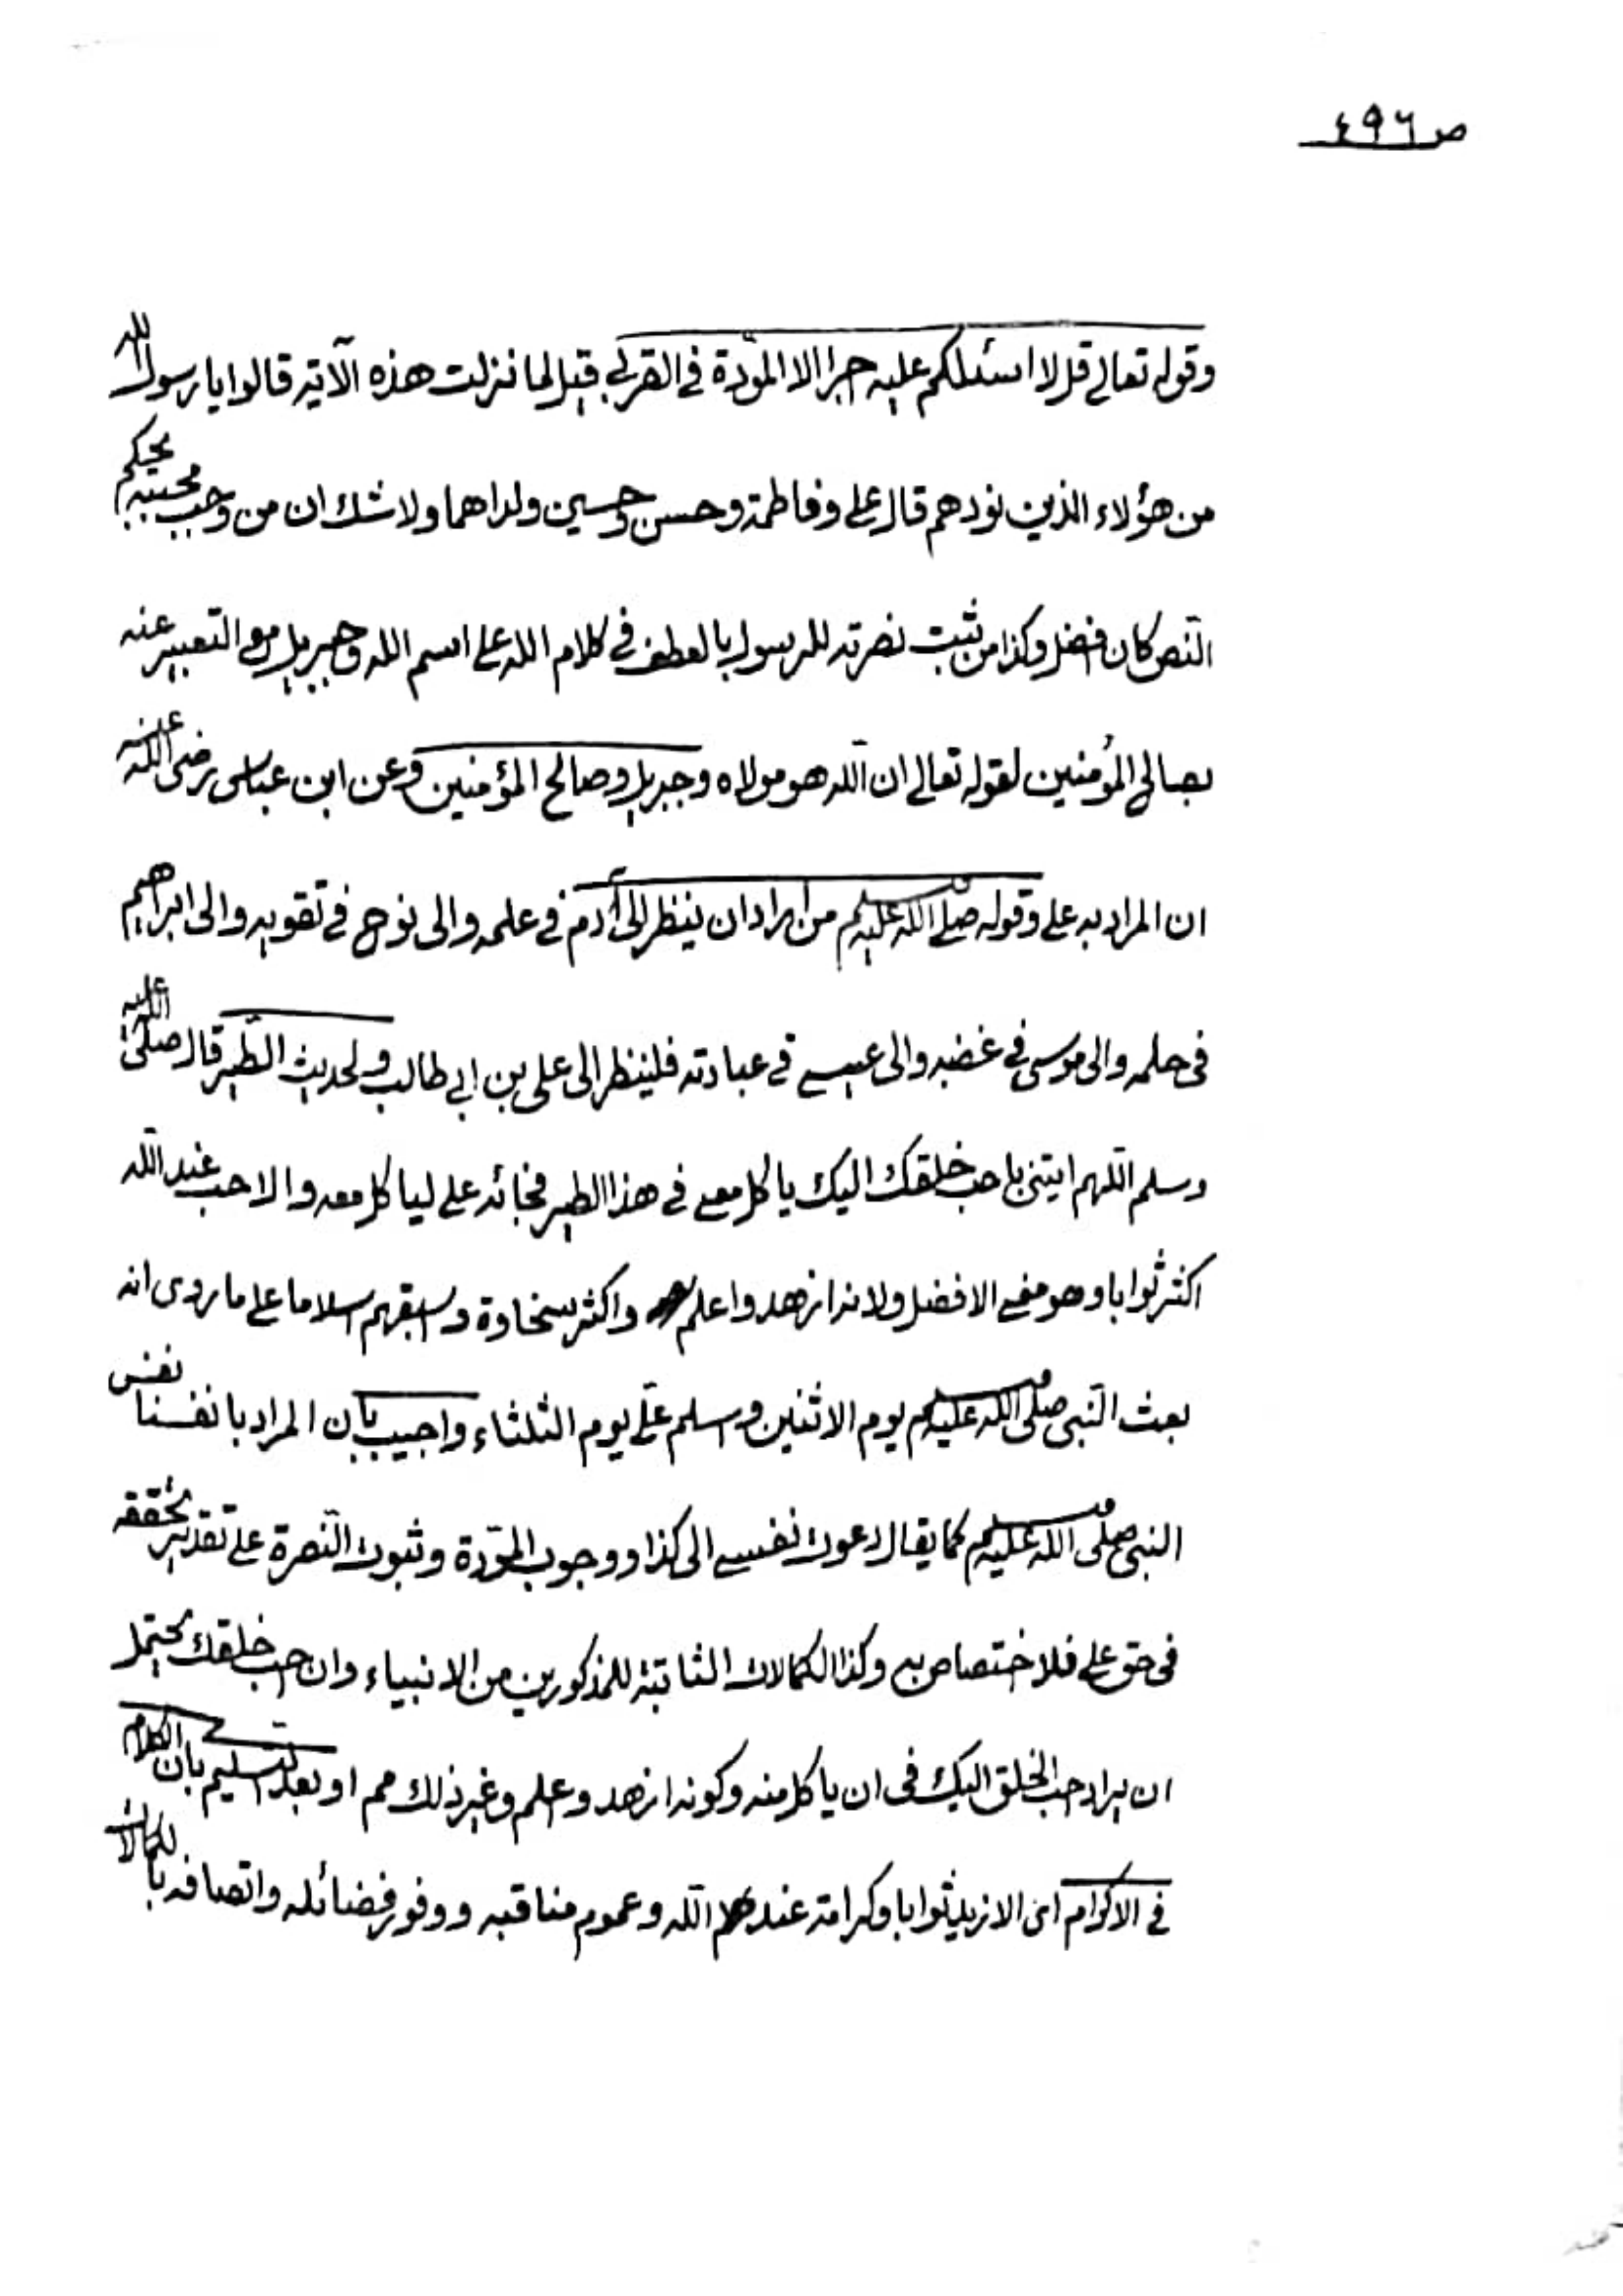 ص ٤٩٦
وقوله تعالى قل لا اسئلكم عليه جرا الا المودة في القربى قيل لما نزلت هذه الآية قالوا يا رسول الله
من هؤلاء الذين نودهم قال علي وفاطمة وحسن وحسين ولداهما ولا شك ان من وجب محبته بحكم
النص كان فضل وكذا من ثبت نصرته للرسول بالعطف في كلام الله على اسم الله وجبريل مع التعبير عنه
بصالح المؤمنين لقوله تعالى ان الله هو مولاه وجبريل وصالح المؤمنين وعن ابن عباس رضى الله عنه
ان المراد به علي وقوله صلى الله عليه وسلم من اراد ان ينظر الى آدم في علمه والى نوح في تقويه والى ابراهيم
في حلمه والى موسى في غضبه والى عيسى في عبادته فلينظر الى علي بن ابي طالب ولحديث الطير قال صلى الله عليه
وسلم اللهم ايتني باحب خلقك اليك ياكل معي في هذا الطير فجائه علي لياكل معه والاحب عند الله
اكثر ثوابا وهو معنى الافضل ولانه ازهد واعلم واكثر سخاوة وسبقهم سلاما على ما روى انه
بعث النبي صلى الله عليه وسلم يوم الاثنين وسلم علي يوم الثلثاء واجيب بان المراد بانفسنا نفس
النبي صلى الله عليه وسلم كما يقال دعوت نفسي الى كذا ووجوب المودة وثبوت النصرة على تقدير تحققه
في حق علي فلا ختصاص به وكذا الكمالات الثابتة للمذكورين من الانبياء وان حب خلقك يحتمل
ان يراد حب الخلق اليك في ان ياكل منه وكونه ازهد وعلم وغير ذلك مم او بعد تسليم بان الكلام
في الاكرام اى الازيد ثوابا وكرامة عند الله وعموم مناقبه ووفور فضائله واتصافه بالكمالات